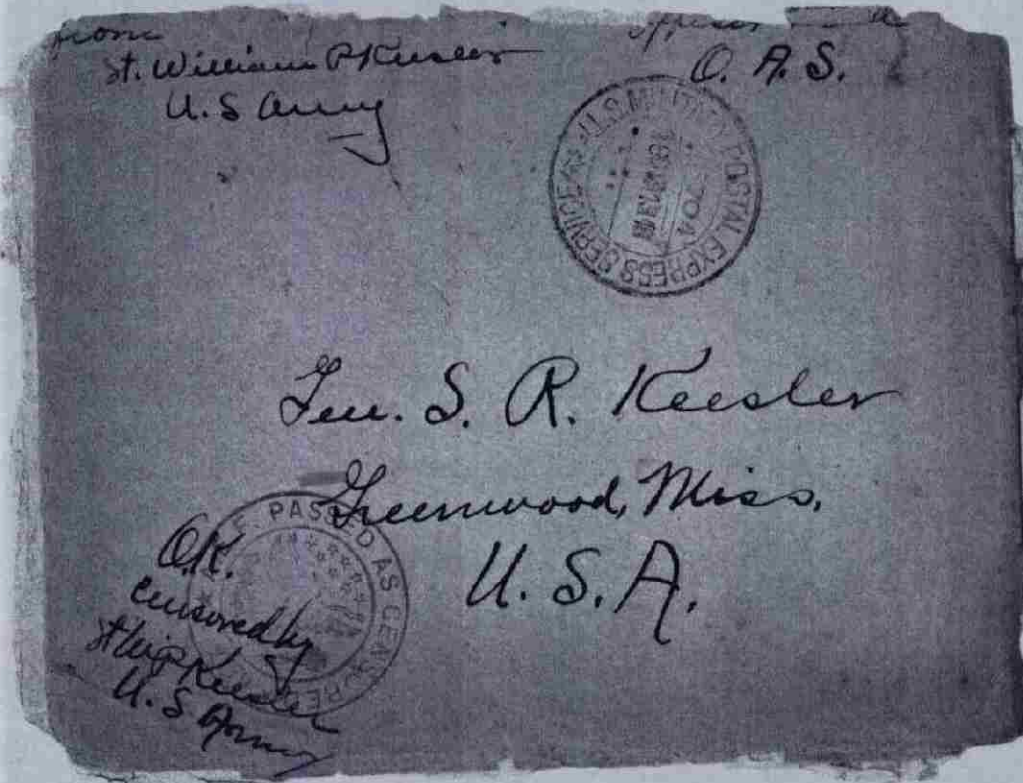 from
Lt. William P Keesler
U.S Army
O. A. S.
U.S. MILITARY POSTAL EXPRESS SERVICE
Gen. S. R. Keesler
Greenwood, Miss.
U. S. A.
PASSED AS CENSORED
O.K.
censored by
Lt Wm P Keesler
U.S Army